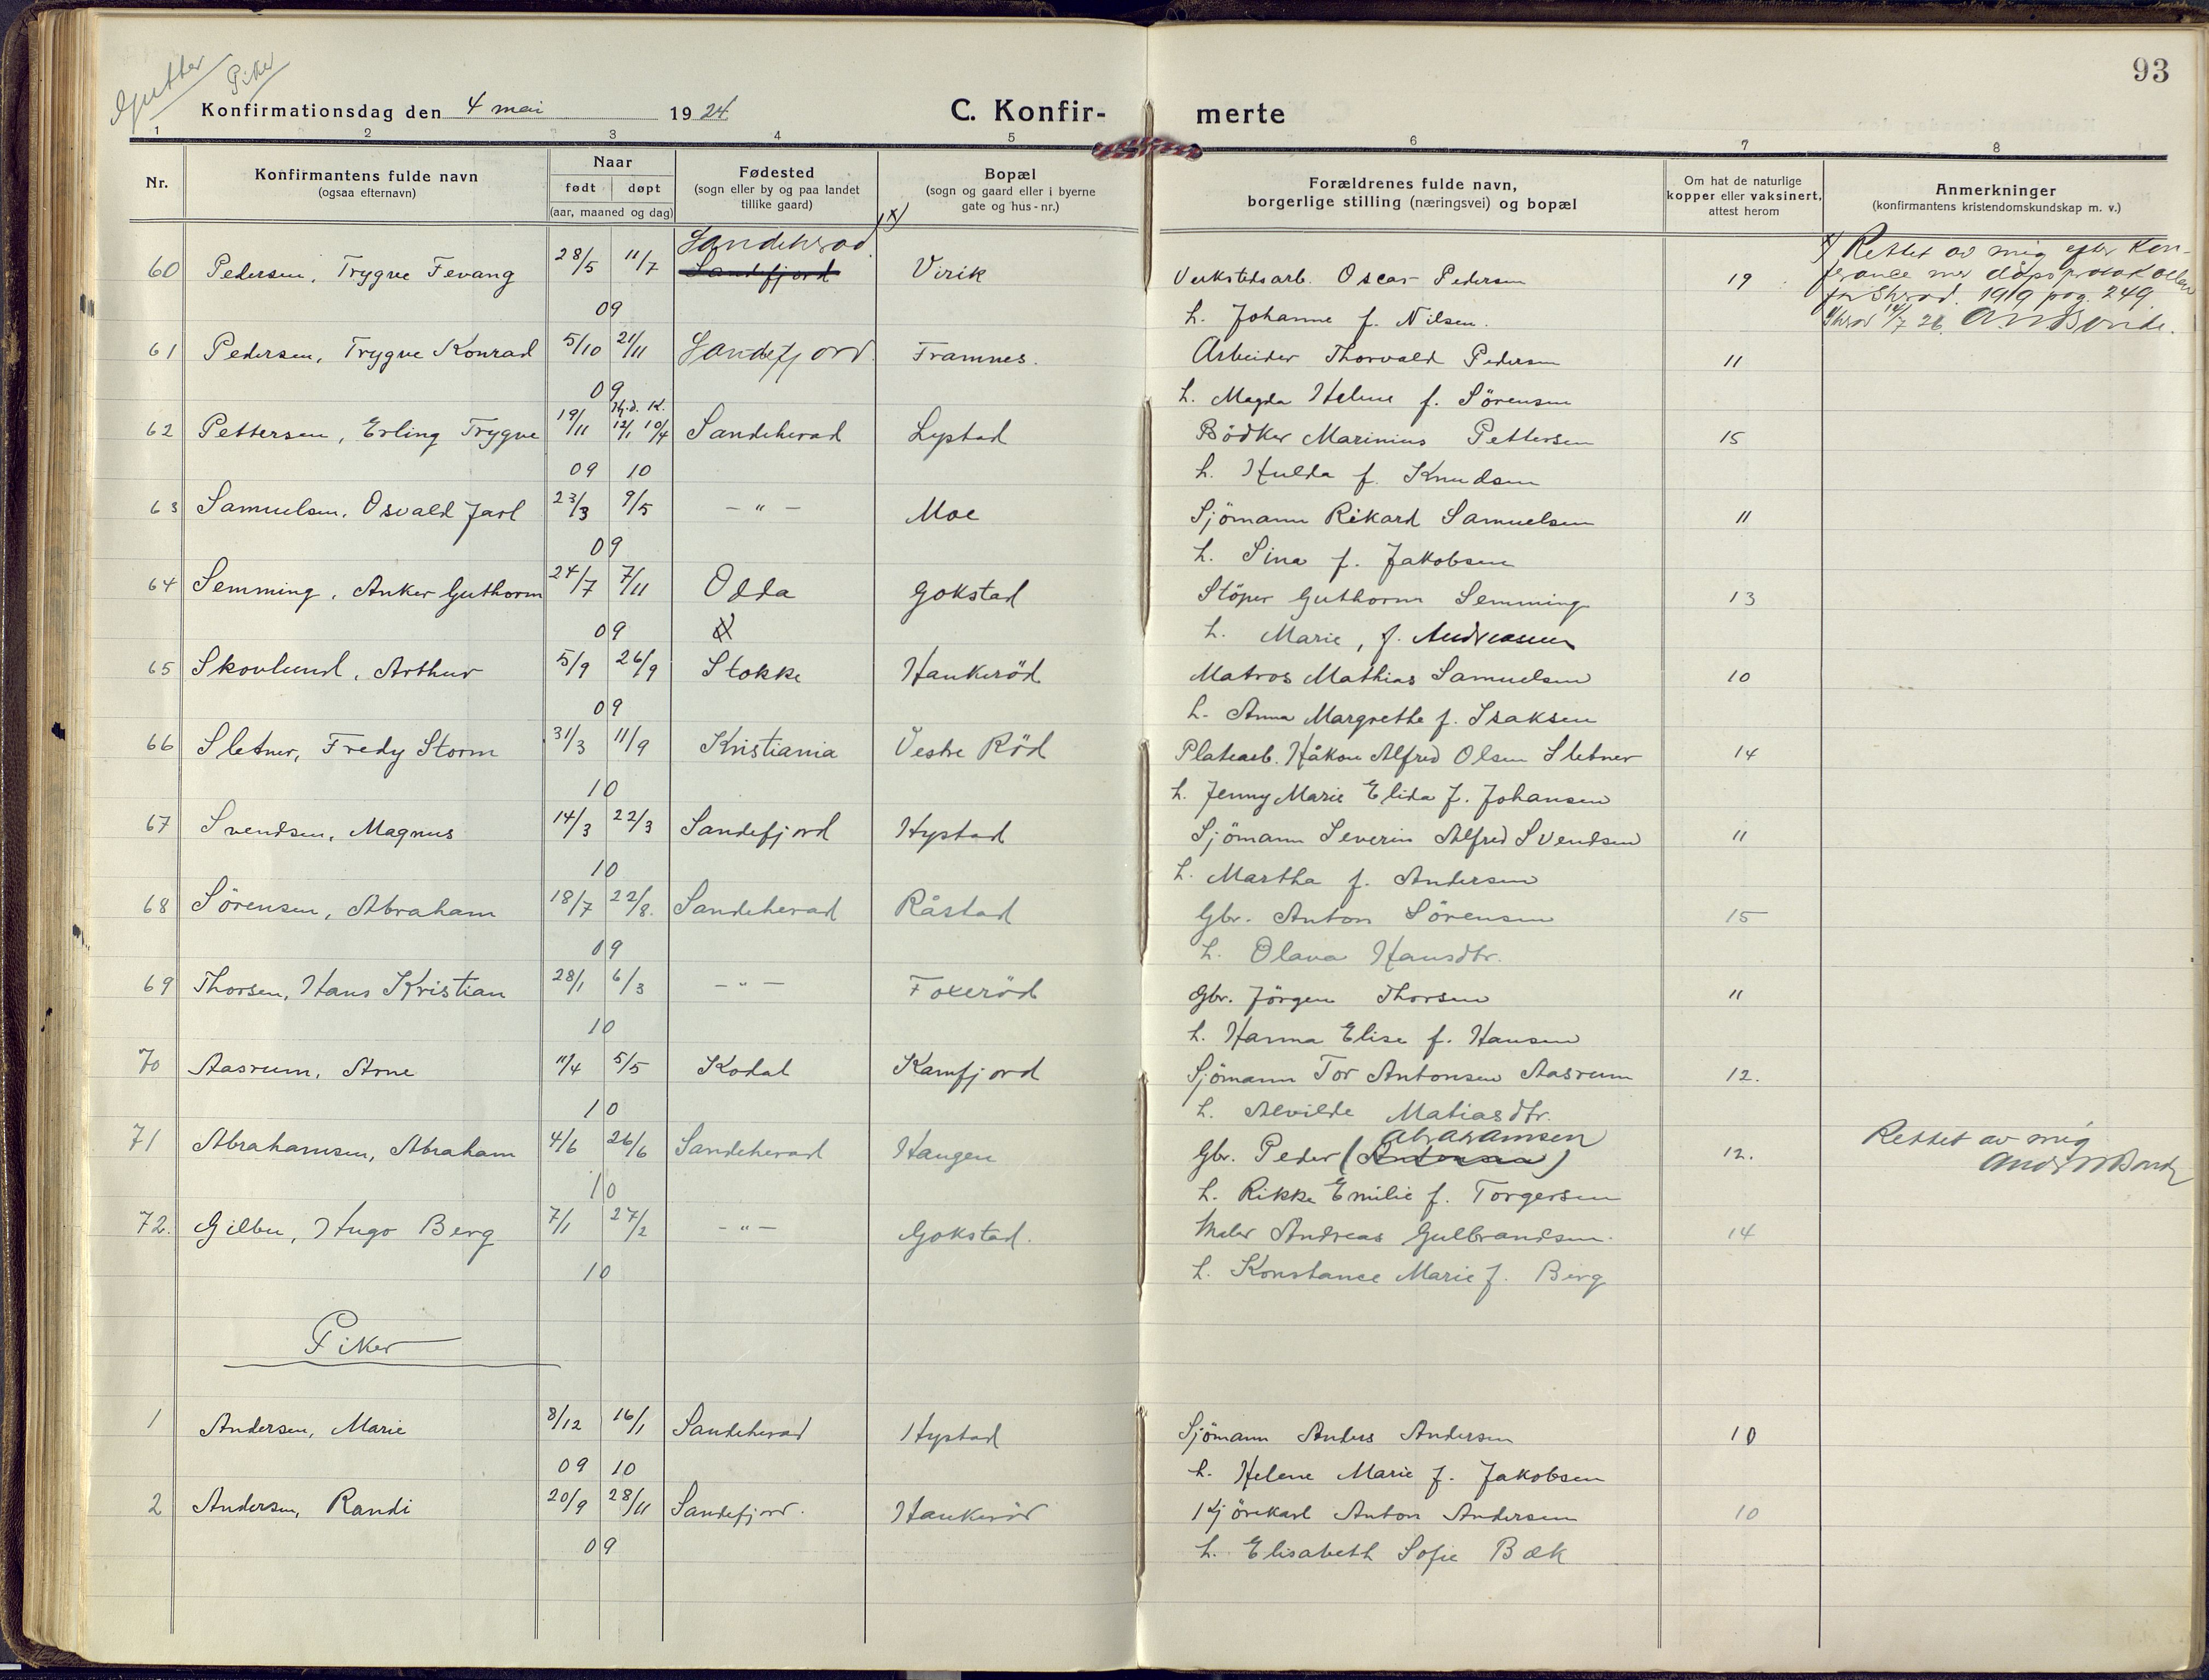 93
Gutter
Piker
Konfirmationsdag den 4 mai 1924
C. Konfir- merte
1 2 3 4 5 6 7 8
Nr.
Konfirmantens fulde navn
(ogsaa efternavn)
Naar
født døpt
(aar, maaned og dag)
Fødested
(sogn eller by og paa landet
tillike gaard)
Bopæl
(sogn og gaard eller i byerne
gate og hus-nr.)
Forældrenes fulde navn,
borgerlige stilling (næringsvei) og bopæl
Om hat de naturlige
kopper eller vaksinert,
attest herom
Anmerkninger
(konfirmantens kristendomskundskap m. v.)
x)
Sandeherad
60 Pedersen, Trygve Fevang 28/5 11/7 Sandefjord Virik Verkstedsarb. Oscar Pedersen 19
09 h. Johanne f. Nilsen.
x) Rettet av mig efter kon-
feranse med dåpsprotokollen
for Shrad. 1919 pag. 249
Shrad 14/7 26.
61 Pedersen, Trygve Konrad 5/10 21/11 Sandefjord Framnes. Arbeider Thorvald Pedersen "
09 h. Magda Helene f. Sörensen
Hj.d. K.
62 Pettersen, Erling Trygve 19/11 12/1 10/4 Sandeherad Lystad Bödker Marinius Pettersen 15
09 10 h. Hulda f. Knudsen
63 Samuelsen, Osvald Jarl 23/3 9/5 - " - Moe Sjömann Rikard Samuelsen "
09 h. Sina f. Jakobsen
64 Semming, Anker Guthorm 24/7 7/11 Odda Gokstad Stöper Guthorm Semming 13
09 h. Marie, f. Andreasen
65 Skovlund, Arthur 5/9 26/9 Stokke Haukeröd Matros Mathias Samuelsen 10
09 h. Anna Margrethe f. Isaksen
66 Sletner, Fredy Storm 31/3 11/9 Kristiania Vestre Röd Platearb. Håkon Alfred Olsen Sletner 14
10 h. Jenny Marie Elida f. Johansen
67 Svendsen, Magnus 14/3 22/3 Sandefjord Hystad Sjömann Severin Alfred Svendsen "
10 h. Martha f. Andersen
68 Sörensen, Abraham 18/7 22/8. Sandeherad Råstad Gbr. Anton Sörensen 15
09 h. Olava Hansdtr.
69 Thorsen, Hans Kristian 28/1 6/3 - " - Foxeröd Gbr. Jörgen Thorsen "
10 h. Hanna Elise f. Hansen
70 Aasrum, Arne 11/4 5/5 Kodal Kamfjord Sjömann Tor Antonsen Aasrum 12.
10 h. Alvilde Matiasdtr.
Abrahamsen
71 Abrahamsen, Abraham 4/6 26/6 Sandeherad Haugen Gbr. Peder (Antonsen) 12. Rettet av mig
10 h. Rikke Emilie f. Torgersen
72. Gilbu, Hugo Berg 7/1 27/2 - " - Gokstad. Maler Andreas Gulbrandsen. 14
10 h. Konstance Marie f. Berg
Piker
1 Andersen, Marie 8/12 16/1 Sandeherad Hystad Sjömann Anders Andersen 10
09 10 h. Helene Marie f. Jakobsen
2 Andersen, Randi 20/9 28/11 Sandefjord. Haukeröd Kjörekarl Anton Andersen 10
09 h. Elisabeth Sofie Bæk